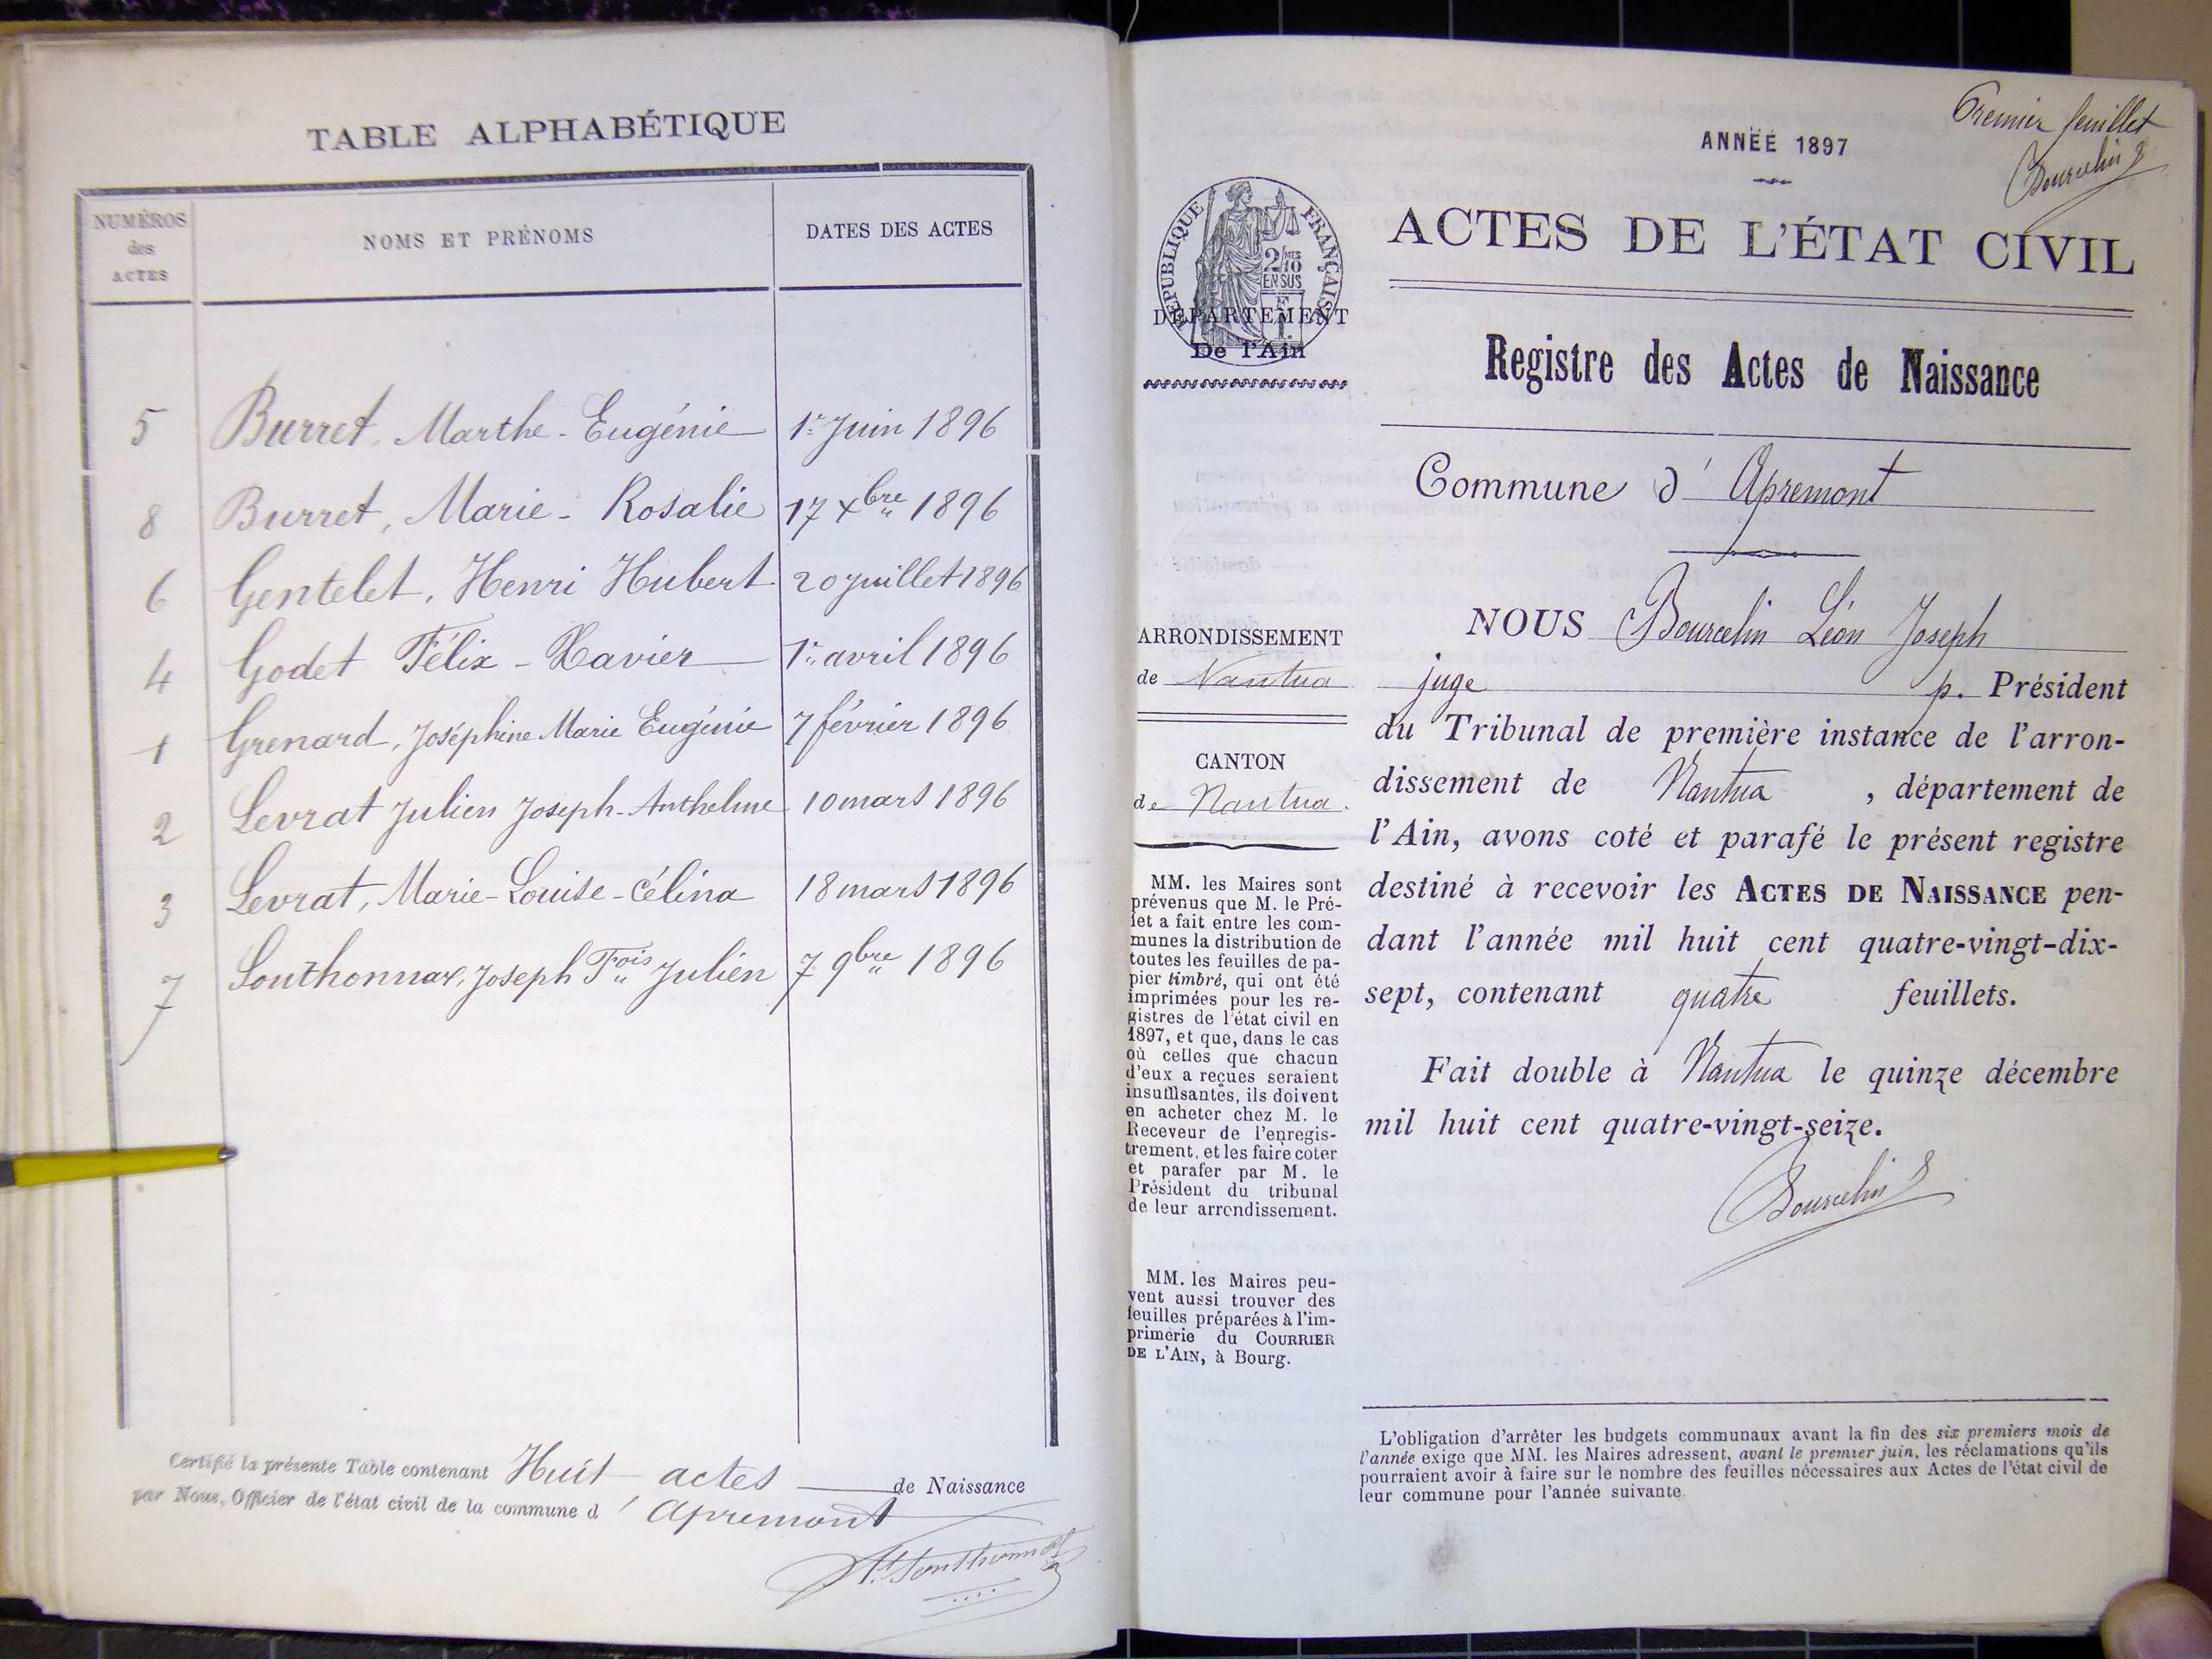 TABLE ALPHABÉTIQUE
NUMÉROS
des
ACTES
NOMS ET PRÉNOMS
DATES DES ACTES
5 Burret, Marthe-Eugénie 1er Juin 1896
8 Burret, Marie-Rosalie 17 Xbre 1896
6 Gentelet, Henri Hubert 20 Juillet 1896
4 Godet Félix-Xavier 1er avril 1896
1 Grenard, Joséphine Marie Eugénie 7 février 1896
2 Levrat Julien Joseph-Anthelme 10 mars 1896
3 Levrat, Marie-Louise-Célina 18 mars 1896
7 Southonnax, Joseph Fois Julien 7 9bre 1896
Certifié la présente Table contenant Huit actes de Naissance
par Nous, Officier de l'état civil de la commune d' Apremont
Premier feuillet
Bourcelin
ANNÉE 1897
RÉPUBLIQUE FRANÇAISE
2/10MES
EN SUS
F
1
DÉPARTEMENT
De l'Ain
ACTES DE L'ÉTAT CIVIL
Registre des Actes de Naissance
Commune d' Apremont
ARRONDISSEMENT
de Nantua
CANTON
de Nantua.
MM. les Maires sont
prévenus que M. le Pré-
fet a fait entre les com-
munes la distribution de
toutes les feuilles de pa-
pier timbré, qui ont été
imprimées pour les re-
gistres de l'état civil en
1897, et que, dans le cas
où celles que chacun
d'eux a reçues seraient
insuffisantes, ils doivent
en acheter chez M. le
Receveur de l'enregis-
trement, et les faire coter
et parafer par M. le
Président du tribunal
de leur arrondissement.
MM. les Maires peu-
vent aussi trouver des
feuilles préparées à l'im-
primerie du COURRIER
DE L'AIN, à Bourg.
NOUS Bourcelin Léon Joseph
juge p. Président
du Tribunal de première instance de l'arron-
dissement de Nantua , département de
l'Ain, avons coté et parafé le présent registre
destiné à recevoir les ACTES DE NAISSANCE pen-
dant l'année mil huit cent quatre-vingt-dix-
sept, contenant quatre feuillets.
Fait double à Nantua le quinze décembre
mil huit cent quatre-vingt-seize.
Bourcelin
L'obligation d'arrêter les budgets communaux avant la fin des six premiers mois de
l'année exige que MM. les Maires adressent, avant le premier juin, les réclamations qu'ils
pourraient avoir à faire sur le nombre des feuilles nécessaires aux Actes de l'état civil de
leur commune pour l'année suivante.